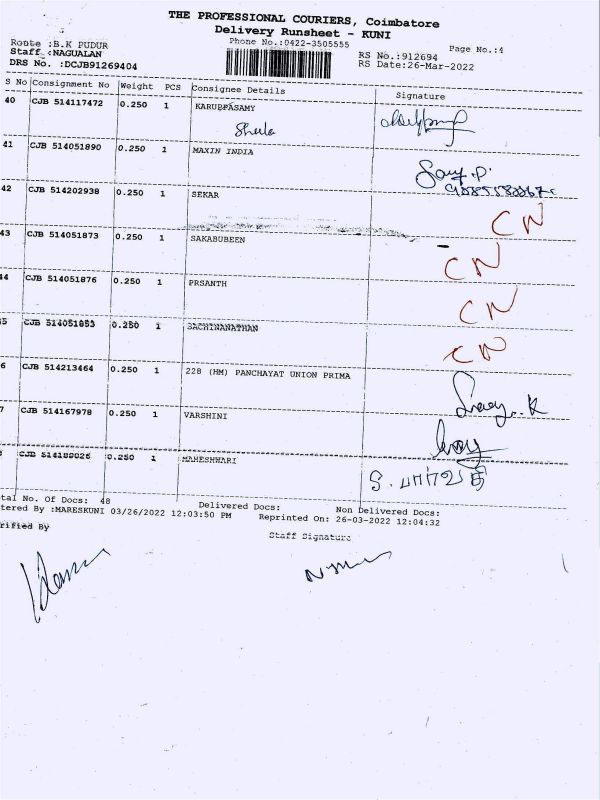 THE PROFESSIONAL COURIERS, Coimbatore
Delivery Runsheet - KUNI
Phone No.:0422-3505555
Route :B.K PUDUR
Staff :NAGUALAN
DRS No. :DCJB91269404
RS No.:912694
RS Date:26-Mar-2022
Page No.:4
S No Consignment No Weight PCS Consignee Details Signature
40 CJB 514117472 0.250 1 KARUPPASAMY
Sheela
41 CJB 514051890 0.250 1 MAXIN INDIA
42 CJB 514202938 0.250 1 SEKAR
CN
43 CJB 514051873 0.250 1 SAKABUBEEN
CN
44 CJB 514051876 0.250 1 PRSANTH
CN
5 CJB 514051853 0.250 1 SACHINANATHAN
CN
6 CJB 514213464 0.250 1 228 (HM) PANCHAYAT UNION PRIMA
7 CJB 514167978 0.250 1 VARSHINI
CJB 514189026 0.250 1 MAHESHWARI
tal No. Of Docs: 48 Delivered Docs: Non Delivered Docs:
tered By :MARESKUNI 03/26/2022 12:03:50 PM Reprinted On: 26-03-2022 12:04:32
rified By Staff Signature